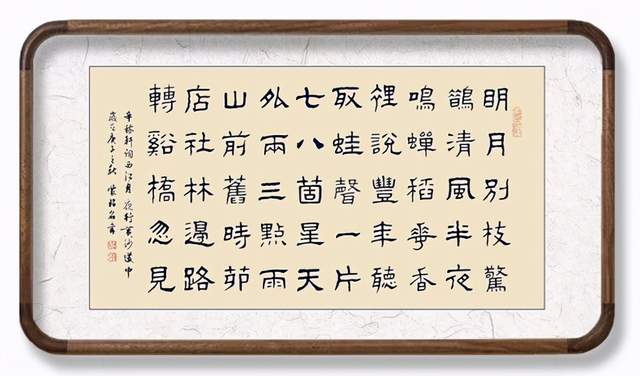 明月別枝驚
鵲清風半夜
鳴蟬稻華香
裡說豐年聽
取蛙聲一片
七八箇星天
外兩三點雨
山前舊時茆
店社林邊路
轉谿橋忽見
辛稼軒詞西江月夜行黃沙道中
歲在庚子之秋 書